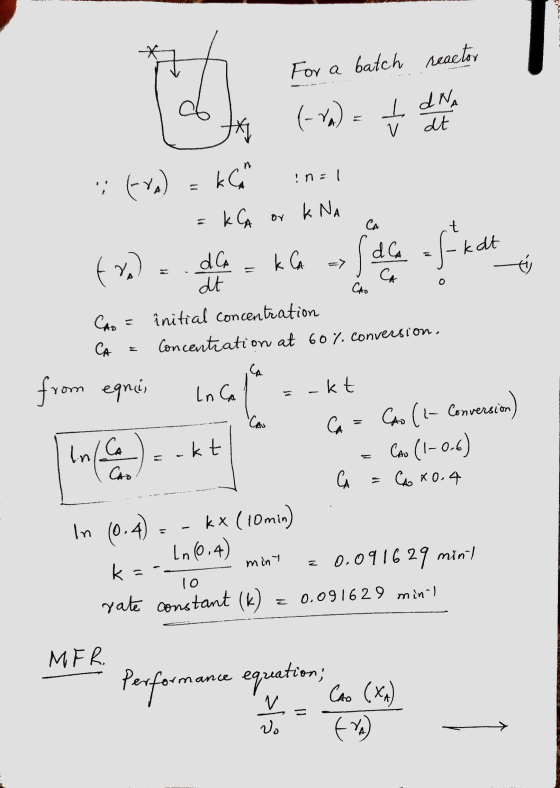 For a batch reactor
(-rA) = 1/V dNA/dt
∵ (-rA) = kCA^n  : n = 1
= kCA or k NA
(-rA) = - dCA/dt = k CA => ∫_{CA0}^{CA} dCA/CA = ∫_0^t - k dt —(i)
CA0 = initial concentration
CA = Concentration at 60 % conversion.
from eqn(i), ln CA |_{CA0}^{CA} = - k t
CA = CA0 (1 - Conversion)
= CA0 (1-0.6)
CA = CA0 x 0.4
ln(CA/CA0) = - k t
ln (0.4) = - k x (10 min)
k = - ln(0.4)/10 min-1 = 0.091629 min-1
rate constant (k) = 0.091629 min-1
MFR.
Performance equation;
V/v0 = CA0 (XA)/(-rA) →